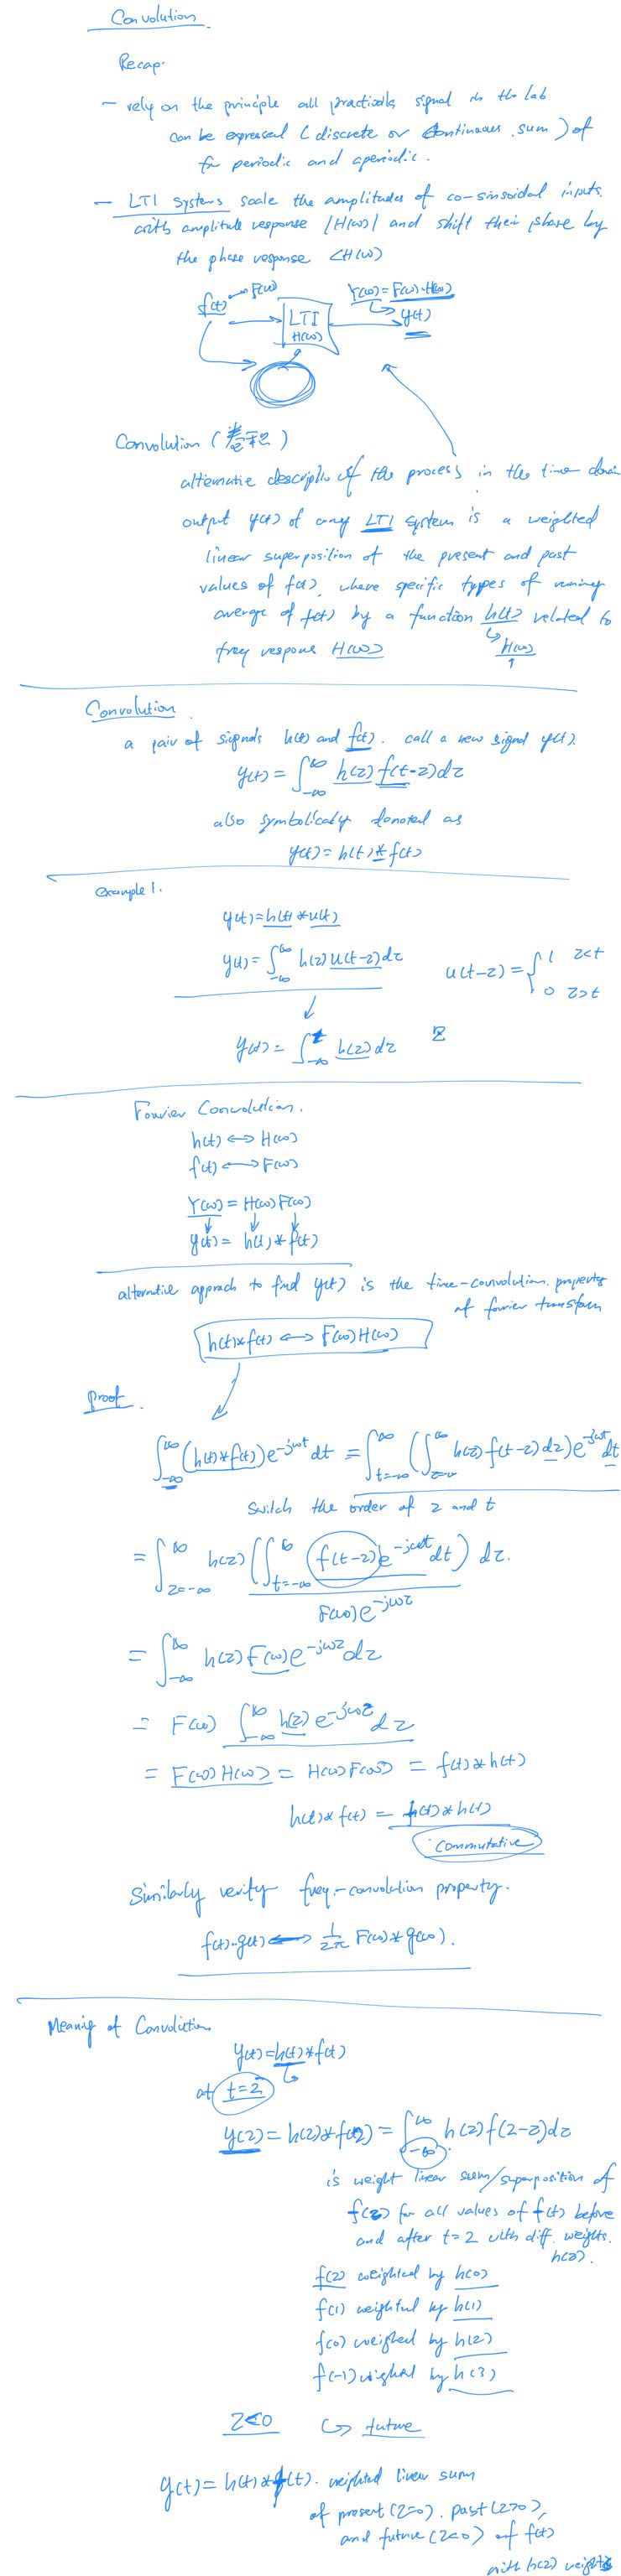 Convolution.
Recap.
- rely on the principle all practical signal in the lab
can be expressed (discrete or continuous sum) of
for periodic and aperiodic.
- LTI systems scale the amplitudes of co-sinsoidal inputs
with amplitude response |H(ω)| and shift their phase by
the phase response ∠H(ω)
F(ω)
Y(ω)=F(ω)·H(ω)
f(t)
LTI
H(ω)
y(t)
Convolution (卷积)
alternative of the process in the time
output y(t) of any LTI system is a weighted
linear superposition of the present and past
values of f(t), where specific types of running
average of f(t) by a function h(t) related to
freq response H(ω)
H(ω)
Convolution
a pair of signals h(t) and f(t). call a new signal y(t).
y(t) = ∫_{-∞}^{∞} h(z) f(t-z)dz
also symbolically denoted as
y(t)= h(t) * f(t)
example 1.
y(t)=h(t)*u(t)
y(t)= ∫_{-∞}^{∞} h(z) u(t-z)dz
u(t-z) = { 1 z<t
0 z>t
y(t)= ∫_{-∞}^{t} h(z)dz
Fourier Convolution.
h(t) ↔ H(ω)
f(t) ↔ F(ω)
Y(ω) = H(ω)F(ω)
y(t) = h(t) * f(t)
approach to find y(t) is the time-convolution. property
of fourier transform
h(t)*f(t) ↔ F(ω)H(ω)
Proof.
∫_{-∞}^{∞} (h(t)*f(t))e^{-jωt}dt = ∫_{t=-∞}^{∞} (∫_{z=-∞}^{∞} h(z)f(t-z)dz)e^{-jωt}dt
switch the order of z and t
= ∫_{z=-∞}^{∞} h(z) (∫_{t=-∞}^{∞} f(t-z)e^{-jωt}dt) dz.
F(ω)e^{-jωz}
= ∫_{-∞}^{∞} h(z)F(ω)e^{-jωz}dz
= F(ω) ∫_{-∞}^{∞} h(z)e^{-jωz}dz
= F(ω)H(ω) = H(ω)F(ω) = f(t)*h(t)
h(t)*f(t) = f(t)*h(t)
commutative
Similarly verify freq.-convolution property.
f(t)·g(t) ↔ 1/2π F(ω)*g(ω).
Meaning of Convolution
y(t)=h(t)*f(t)
at t=2
y(2)= h(2)*f(2) = ∫_{-∞}^{∞} h(z)f(2-z)dz
is weight linear sum/superposition of
f(z) for all values of f(t) before
and after t=2 with diff. weights.
h(z).
f(2) weighted by h(0)
f(1) weighted by h(1)
f(0) weighed by h(2)
f(-1) weighed by h(3)
z<0 ↳ future
y(t)= h(t)*f(t). weighted linear sum
of present (z=0). past (z>0),
and future (z<0) of f(t)
with h(z) weights